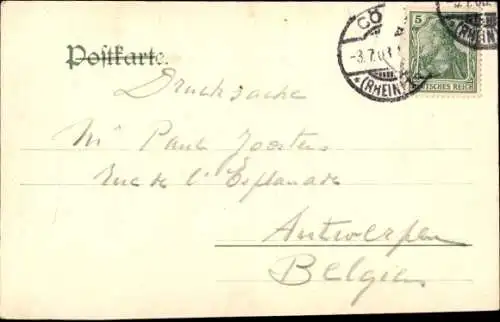 Postkarte.
CÖ
-3.7.03
*(RHEIN)
5
DEUTSCHES REICH
(RHEIN)
Drucksache
Mr Paul Joostens
Rue de l'Esplanade
Antwerpen
Belgien